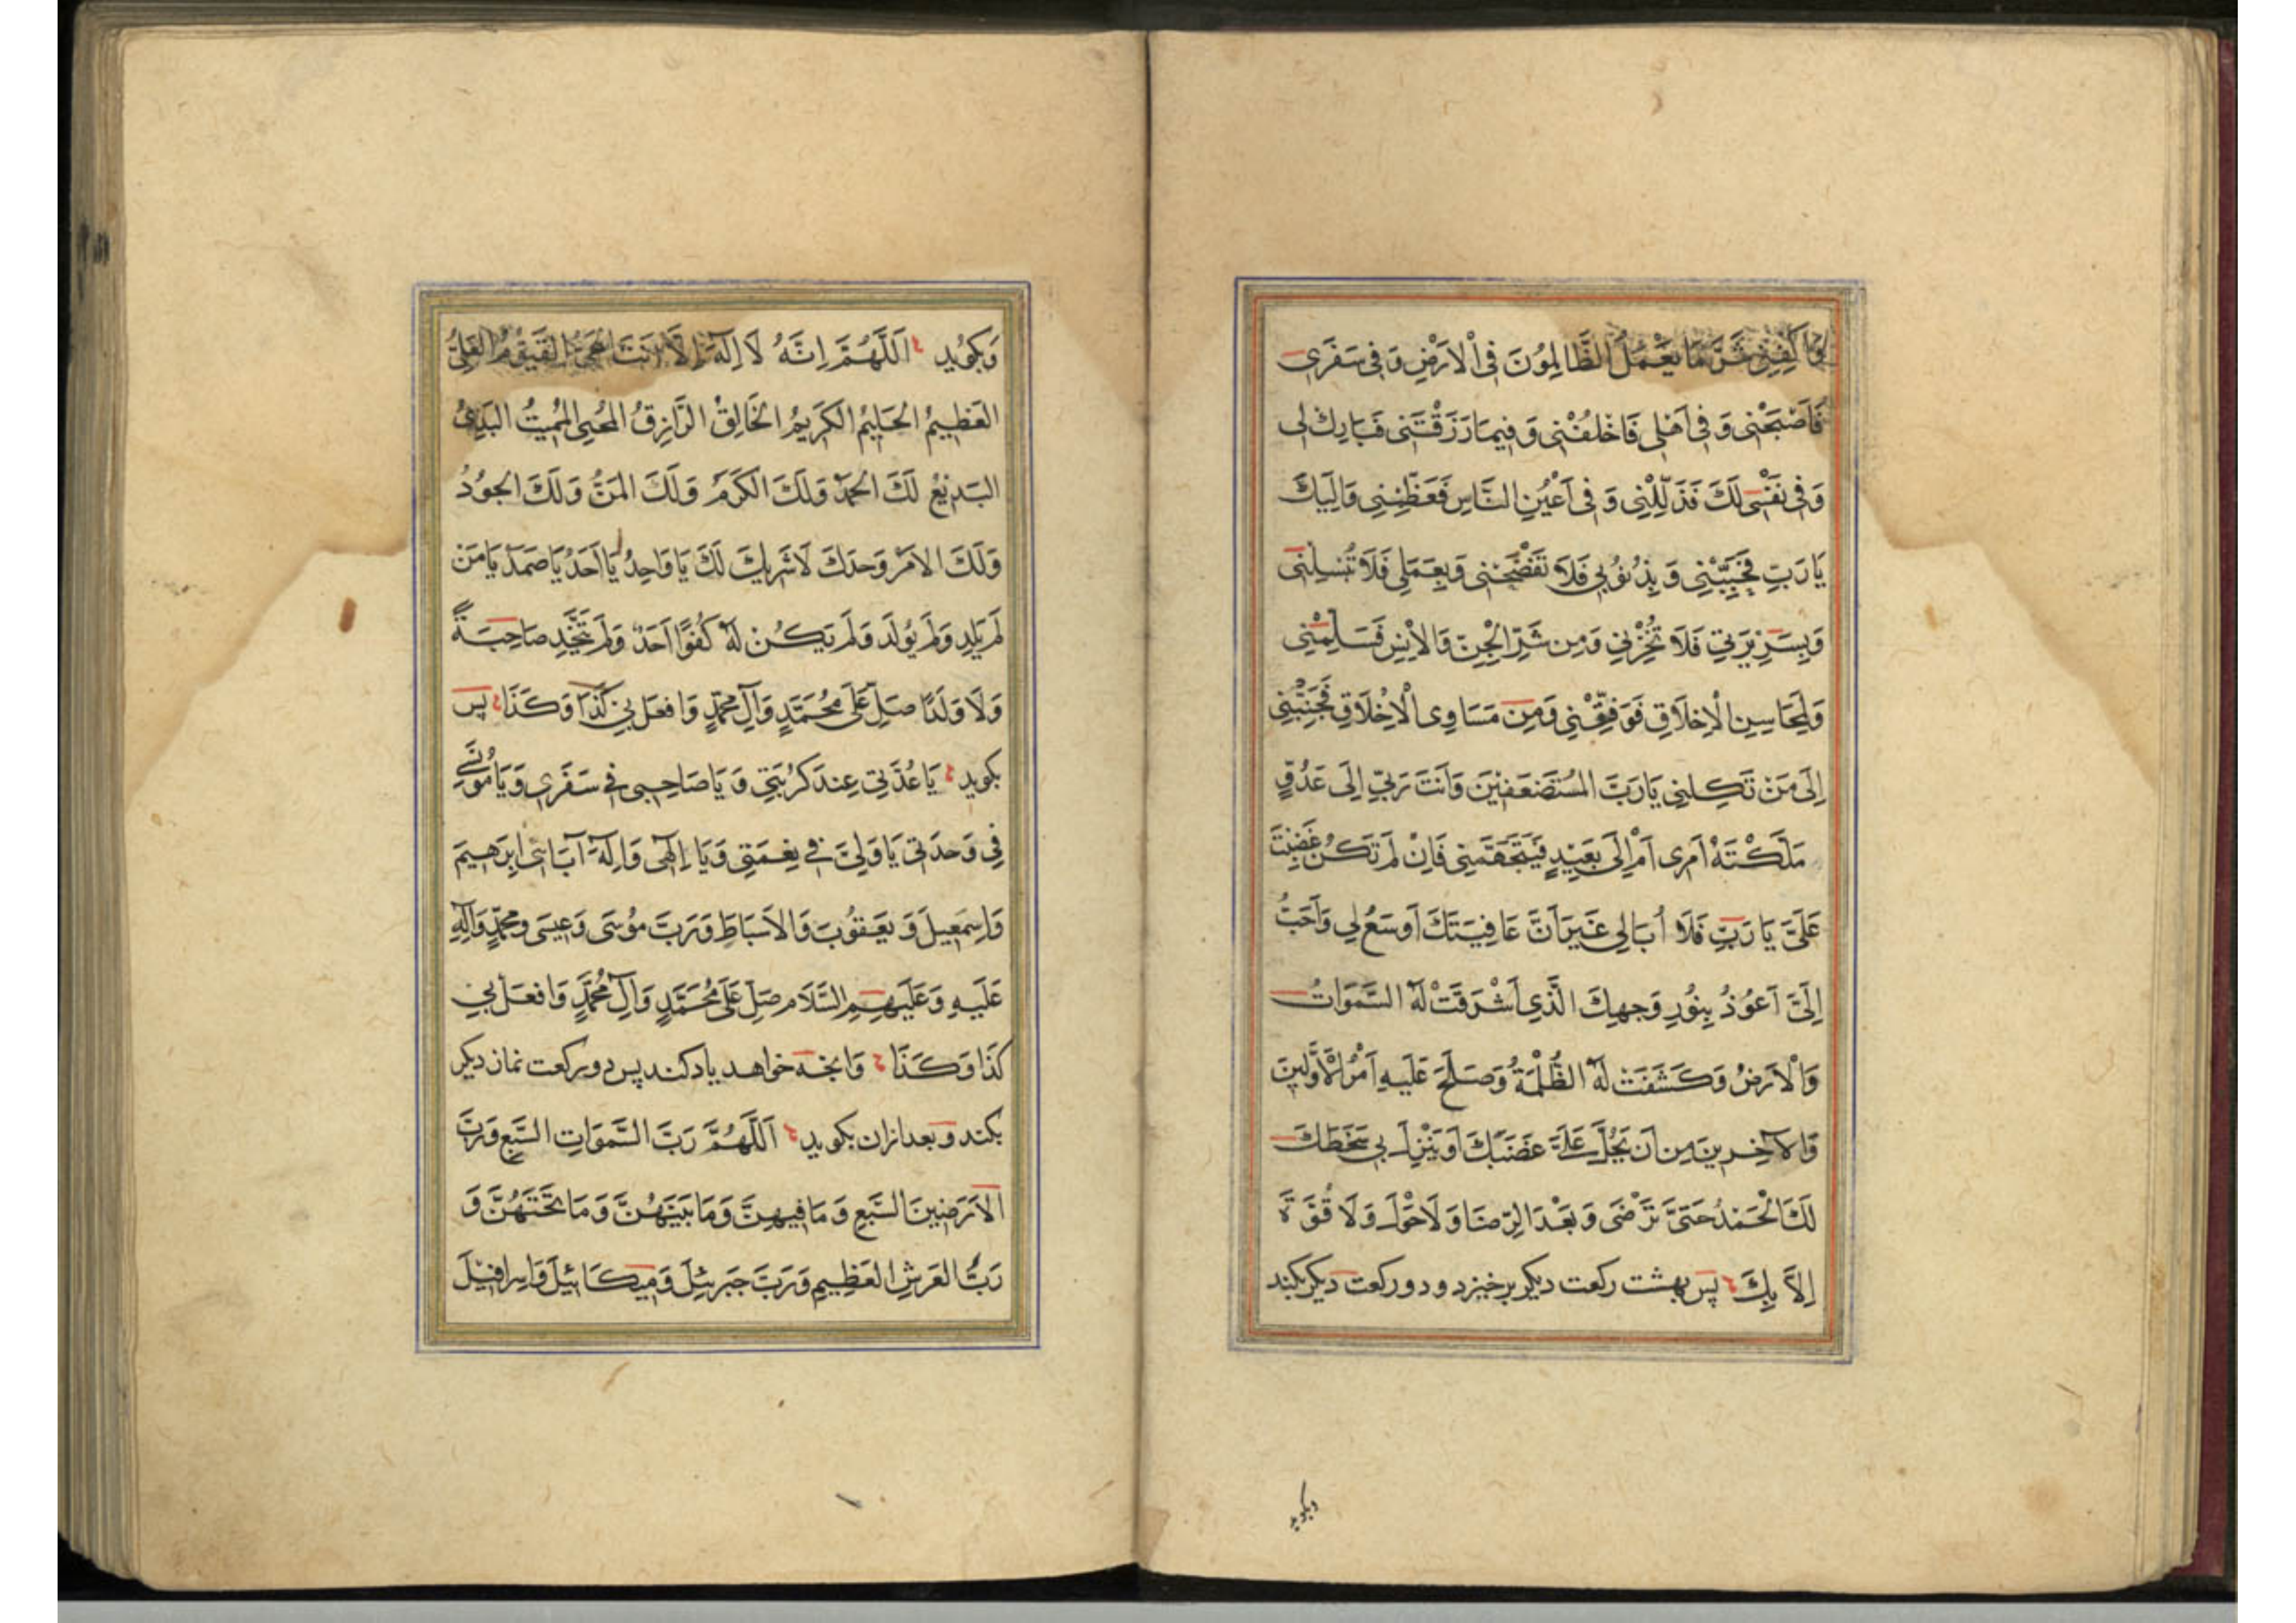 وَاكْفِنِي شَرَّ مَا يَعْمَلُ الظَّالِمُونَ فِي الْاَرْضِ وَفِي سَفَرِي
فَاَصْبَحْنِي وَفِي اَهْلِي فَاخْلُفْنِي وَفِيمَا رَزَقْتَنِي فَبَارِكْ لِي
وَفِي نَفْسِي لَكَ فَذَلِّلْنِي وَفِي اَعْيُنِ النَّاسِ فَعَظِّمْنِي وَاِلَيْكَ
يَا رَبِّ فَحَبِّبْنِي وَبِذُنُوبِي فَلَا تَفْضَحْنِي وَبِعَمَلِي فَلَا تُبْسِلْنِي
وَبِسَرِيرَتِي فَلَا تُخْزِنِي وَمِن شَرِّ الْجِنِّ وَالْاِنْسِ فَسَلِّمْنِي
وَلِمَحَاسِنِ الْاَخْلَاقِ فَوَفِّقْنِي وَمِنْ مَسَاوِی الْاَخْلَاقِ فَجَنِّبْنِي
اِلَى مَنْ تَكِلُنِي يَا رَبَّ المُسْتَضْعَفِينَ وَاَنْتَ رَبِّي اِلَى عَدُوٍّ
مَلَّكْتَهُ اَمْرِي اَمْ اِلَى بَعِيْدٍ فَيَتَجَهَّمَنِي فَاِنْ لَمْ تَكُنْ غَضِبْتَ
عَلَيَّ يَا رَبِّ فَلَا اُبَالِي غَيْرَ اَنَّ عَافِيَتَكَ اَوْسَعُ لِي وَاَحَبُّ
اِلَيَّ اَعُوْذُ بِنُوْرِ وَجْهِكَ الَّذِي اَشْرَقَتْ لَهُ السَّمَوَاتُ
وَالْاَرْضُ وَكَشَفَتْ لَهُ الظُّلْمَةُ وَصَلَحَ عَلَيْهِ اَمْرُ الْاَوَّلِينَ
وَالاٰخِرِينَ مِن اَن يَحُلَّ عَلَيَّ غَضَبُكَ اَوْ يَنْزِلَ بِي سَخَطُكَ
لَكَ الْحَمْدُ حَتَّى تَرْضَى وَبَعْدَ الرِّضَا وَلَا حَوْلَ وَلَا قُوَّةَ
اِلاَّ بِكَ پس بهشت ركعت ديكر برخيزد ودو ركعت ديكر بكند
وبكويد
وَبكوُيد اَللَّهُمَّ اِنَّهُ لَا اِلَهَ اِلَّا اَنْتَ الحَيُّ القَيُّوْمُ العَلِيُّ
العَظِيمُ الحَلِيمُ الكَرِيمُ الخَالِقُ الرَّازِقُ المُحْيِي المُمِيتُ البَدِيءُ
البَدِيْعُ لَكَ الحَمْدُ وَلَكَ الكَرَمُ وَلَكَ المَنُّ وَلَكَ الجُوْدُ
وَلَكَ الاَمْرُ وَحْدَكَ لَا شَرِيكَ لَكَ يَا وَاحِدُ يَا اَحَدُ يَا صَمَدُ يَا مَنْ
لَمْ يَلِدْ وَلَمْ يُولَدْ وَلَمْ يَكُنْ لَهُ كُفُوًا اَحَدٌ وَلَمْ يَتَّخِذْ صَاحِبَةً
وَلَا وَلَدًا صَلِّ عَلَى مُحَمَّدٍ وَآلِ مُحَمَّدٍ وَافعَل بِي كَذَا وَكَذَا پس
بكويد يَا عُدَّتِي عِندَ كُرْبَتِي وَ يَا صَاحِبِي فِي سَفَرِي وَ يَا مُونِسِي
فِي وَحْدَتِي يَا وَلِيَّ فِي نِعْمَتِي وَ يَا اِلَهِي وَاِلَهَ آبَائِي اِبرَهِيمَ
وَاِسمَعِيلَ وَ يَعقُوبَ وَالاَسبَاطِ وَرَبَّ مُوْسَى وَعِيسَى وَمُحَمَّدٍ وَآلِهِ
عَلَيهِ وَعَلَيهِمِ السَّلَام صَلِّ عَلَى مُحَمَّدٍ وَآلِ مُحَمَّدٍ وَافعَل بِي
كَذَا وَكَذَا وَانجه خواهد ياد كند پس دو ركعت نماز ديكر
بكند وبعد ازان بكويد اَللَّهُمَّ رَبَّ السَّمَوَاتِ السَّبعِ وَرَبَّ
الاَرَضِينَ السَّبعِ وَمَا فِيهِنَّ وَمَا بَيْنَهُنَّ وَمَا تَحْتَهُنَّ وَ
رَبَّ العَرشِ العَظِيمِ وَرَبَّ جَبرَئِيلَ وَمِيكَائِيلَ وَاِسرافِيْلَ